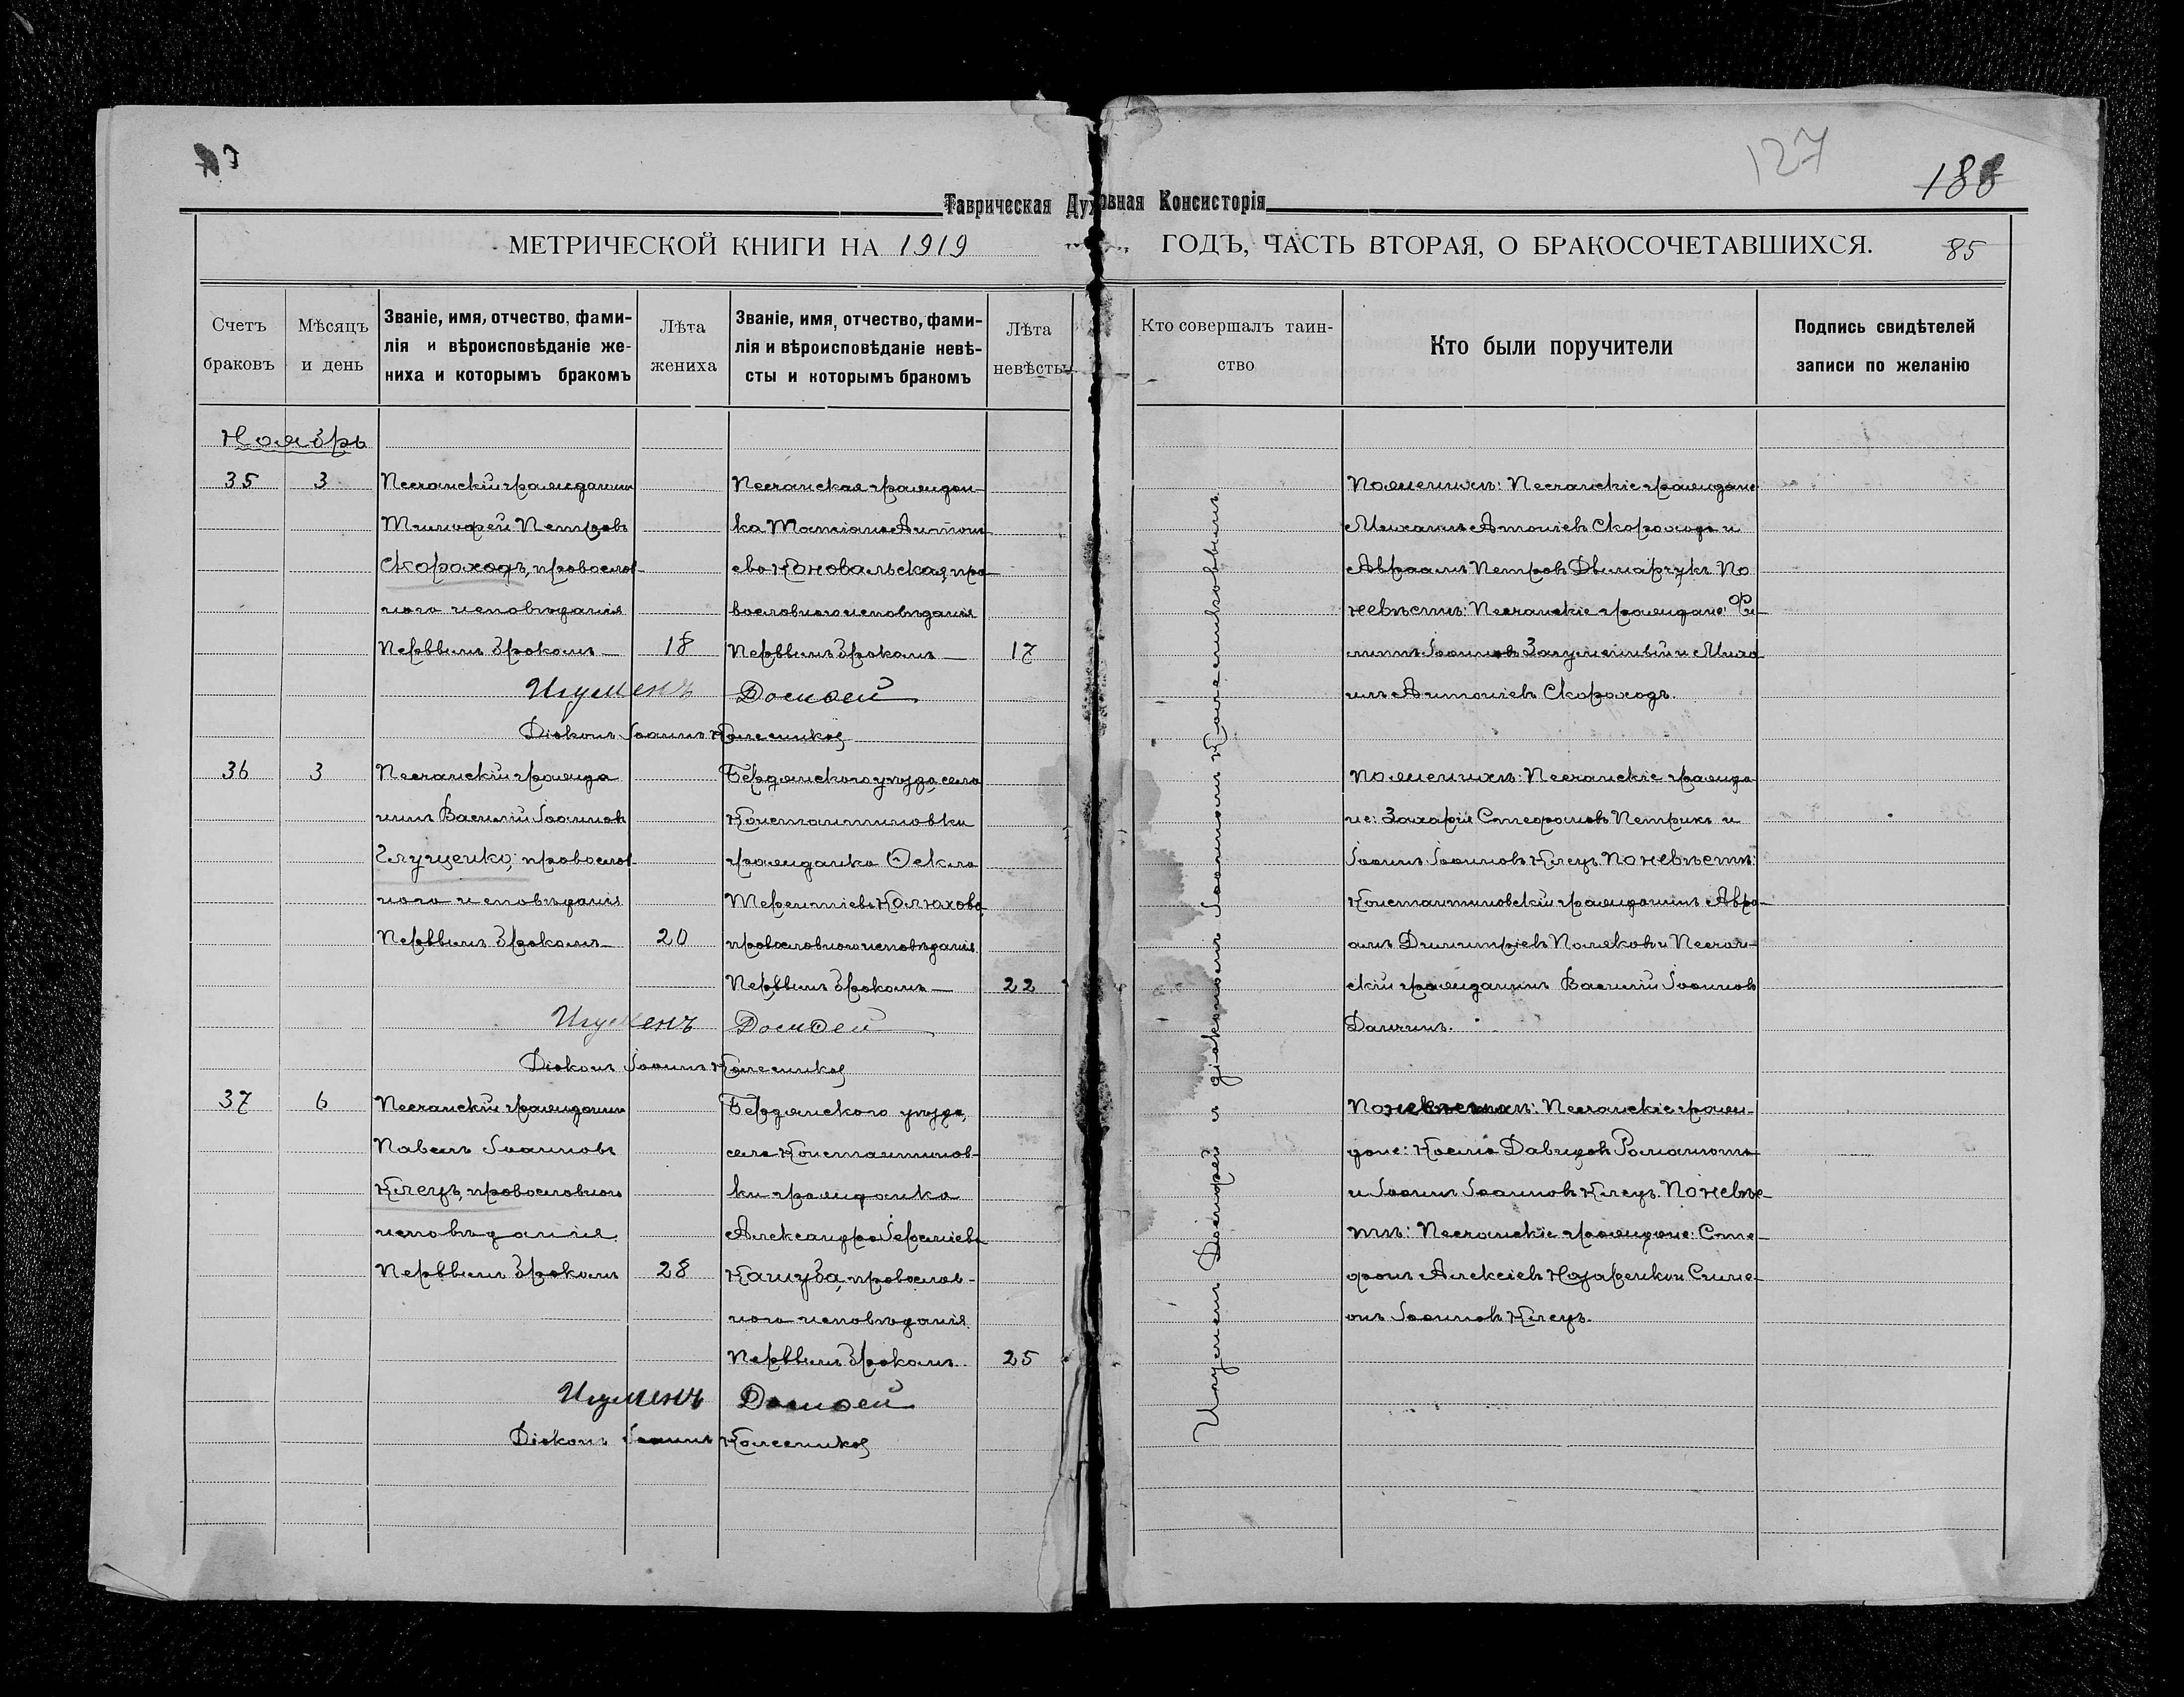 127
188
Таврическая Духовная Консисторія
МЕТРИЧЕСКОЙ КНИГИ НА 1919 ГОДЪ, ЧАСТЬ ВТОРАЯ, О БРАКОСОЧЕТАВШИХСЯ. 85
Счетъ браковъ
Мѣсяцъ и день
Званіе, имя, отчество, фами-
лія и вѣроисповѣданіе же-
ниха и которымъ бракомъ
Лѣта жениха
Званіе, имя, отчество, фами-
лія и вѣроисповѣданіе невѣ-
сты и которымъ бракомъ
Лѣта невѣсты
Кто совершалъ таин-
ство
Кто были поручители
Подпись свидѣтелей
записи по желанію
Ноябрь
35 3
Песчанскій гражданинъ
Тимофей Петровъ
Скороходъ, православ-
наго исповѣданія
Первымъ бракомъ— 18
Песчанская граждан-
ка Татіана Антоні-
ева Коновальская, пра-
вославнаго исповѣданія
Первымъ бракомъ— 17
Игуменъ Досиѳей
Діаконъ Іоаннъ Колесниковъ
По женихѣ: Песчанскіе граждане
Михаилъ Антоніевъ Скороходъ и
Авраамъ Петровъ Двинарчукъ. По
невѣстѣ: Песчанскіе граждане: Фи-
липпъ Іоанновъ и Миха-
илъ Антоніевъ Скороходъ.
36 3
Песчанскій гражда-
нинъ Василій Іоанновъ
Глущенко, православ-
наго исповѣданія
Первымъ бракомъ— 20
Бердянскаго уѣзда, села
Константиновки
гражданка Ѳекла
Терентіева Колюхова,
православнаго исповѣданія
Первымъ бракомъ— 22
Игуменъ Досиѳей
Діаконъ Іоаннъ Колесниковъ
По женихѣ: Песчанскіе гражда-
не: Захарія Стефановъ Петрикъ и
Іоаннъ Іоанновъ Клецъ. По невѣстѣ:
Константиновскій гражданинъ Авра-
амъ Димитріевъ Поляковъ и Песчан-
скій гражданинъ Василій Іоанновъ
Данчинъ.
37 6
Песчанскій гражданинъ
Павелъ Іоанновъ
Клецъ, православнаго
исповѣданія
Первымъ бракомъ 28
Бердянскаго уѣзда,
села Константинов-
ки гражданка
Александра Іереміева
Кацуба, православ-
наго исповѣданія
Первымъ бракомъ. 25
Игуменъ Досиѳей
Діаконъ Іоаннъ Колесниковъ
По женихѣ: Песчанскіе граж-
дане: Косма Давидовъ
и Іоаннъ Іоанновъ Клецъ. По невѣс-
тѣ: Песчанскіе граждане: Сте-
фанъ Алексіевъ Назаренко и Симе-
онъ Іоанновъ Клецъ.
Игуменъ Досиѳей и діаконъ Іоаннъ Колесниковымъ